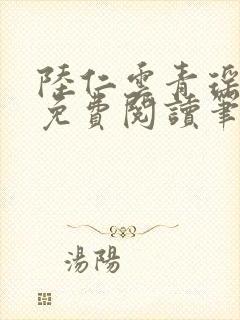 陸仁雲青瑤
免費閱讀筆
湯陽